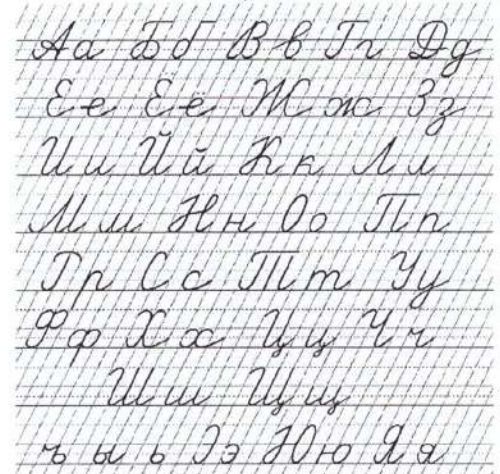 Аа Бб Вв Гг Дд
Ее Ёё Жж Зз
Ии Йй Кк Лл
Мм Нн Оо Пп
Рр Сс Тт Уу
Фф Хх Цц Чч
Шш Щщ
ъ ы ь Ээ Юю Яя